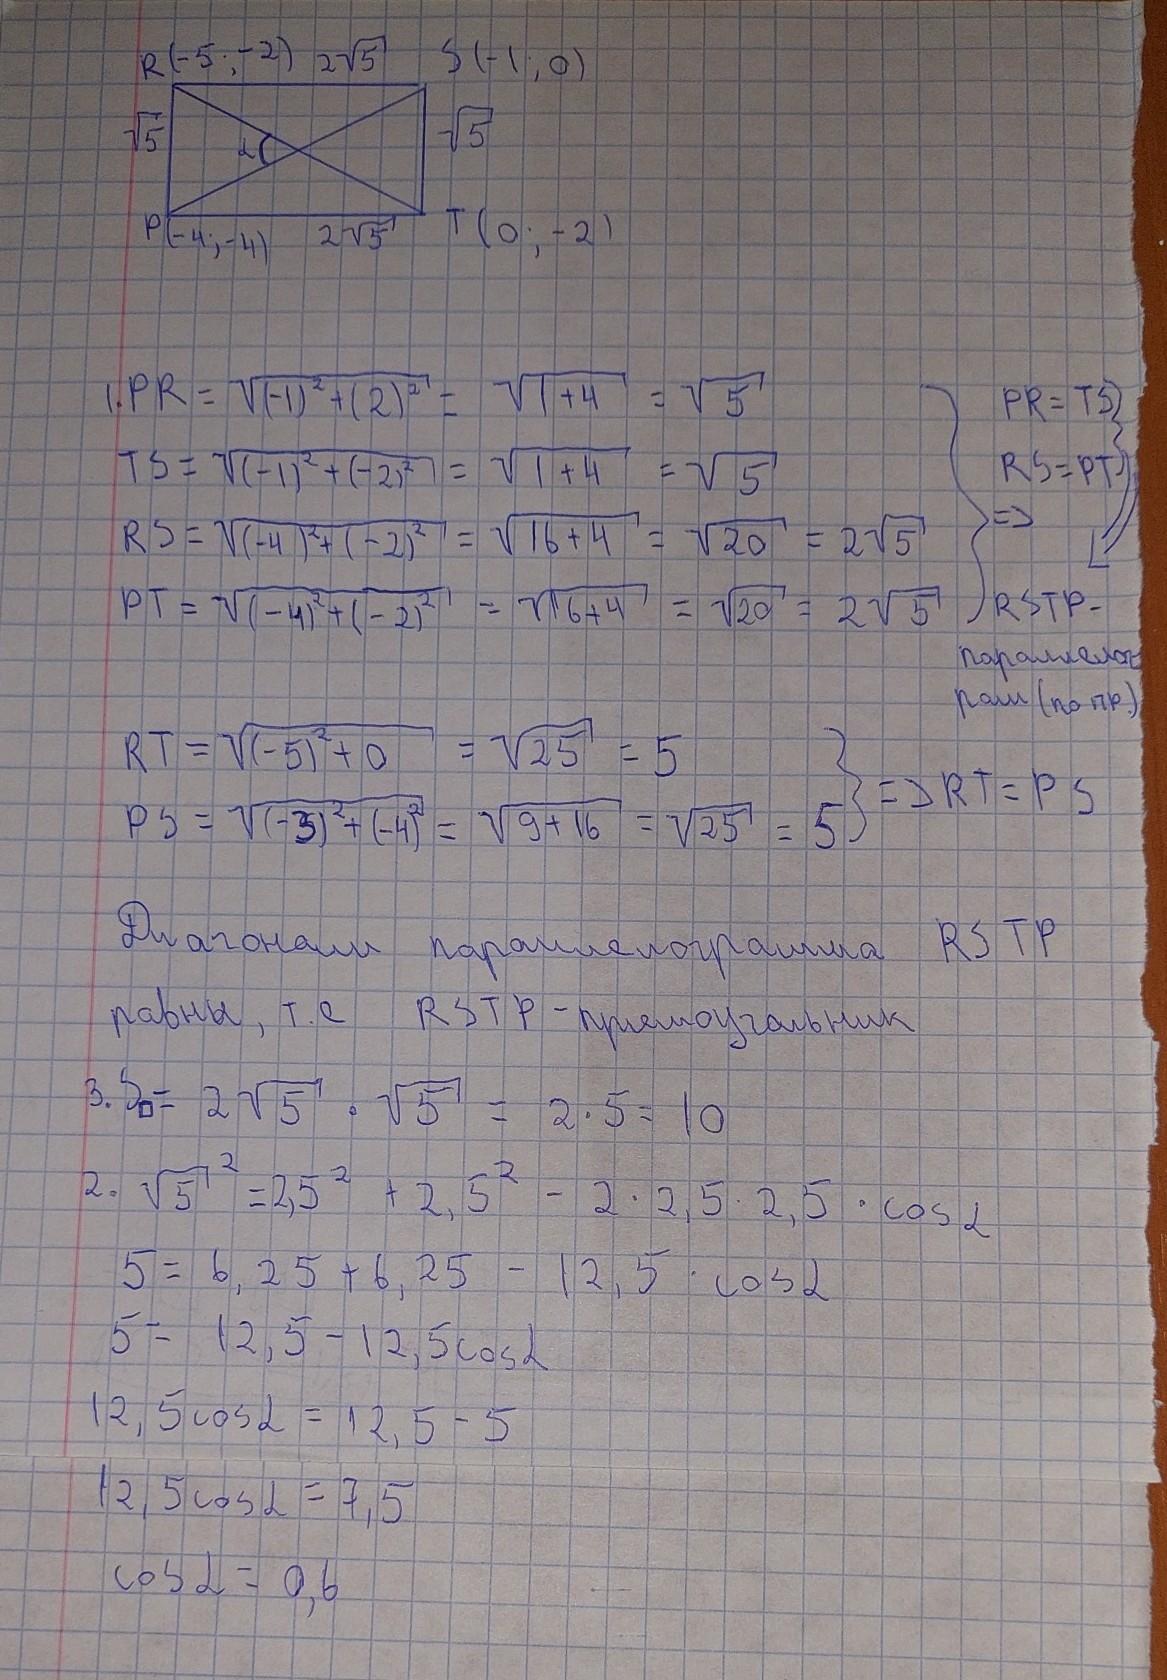 R(-5;-2) 2√5 S(-1;0)
√5 α √5
P(-4;-4) 2√5 T(0;-2)
1. PR = √(-1)²+(2)² = √1+4 = √5 PR = TS
TS = √(-1)²+(-2)² = √1+4 = √5 RS = PT
RS = √(-4)²+(-2)² = √16+4 = √20 = 2√5 =>
PT = √(-4)²+(-2)² = √16+4 = √20 = 2√5 RSTP-
параллелог
рам (по пр.)
RT = √(-5)²+0 = √25 = 5
PS = √(-3)²+(-4)² = √9+16 = √25 = 5 => RT = PS
Диагонали параллелограмма RSTP
равны, т.е RSTP - прямоугольник
3. S▭ = 2√5 · √5 = 2·5 = 10
2. √5² = 2,5² + 2,5² - 2·2,5·2,5·cosα
5 = 6,25 + 6,25 - 12,5·cosα
5 = 12,5 - 12,5cosα
12,5cosα = 12,5 - 5
12,5cosα = 7,5
cosα = 0,6